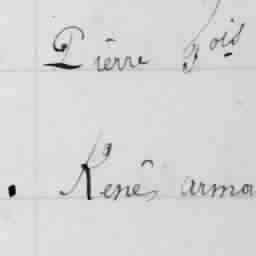 Pierre fois
Renés arma